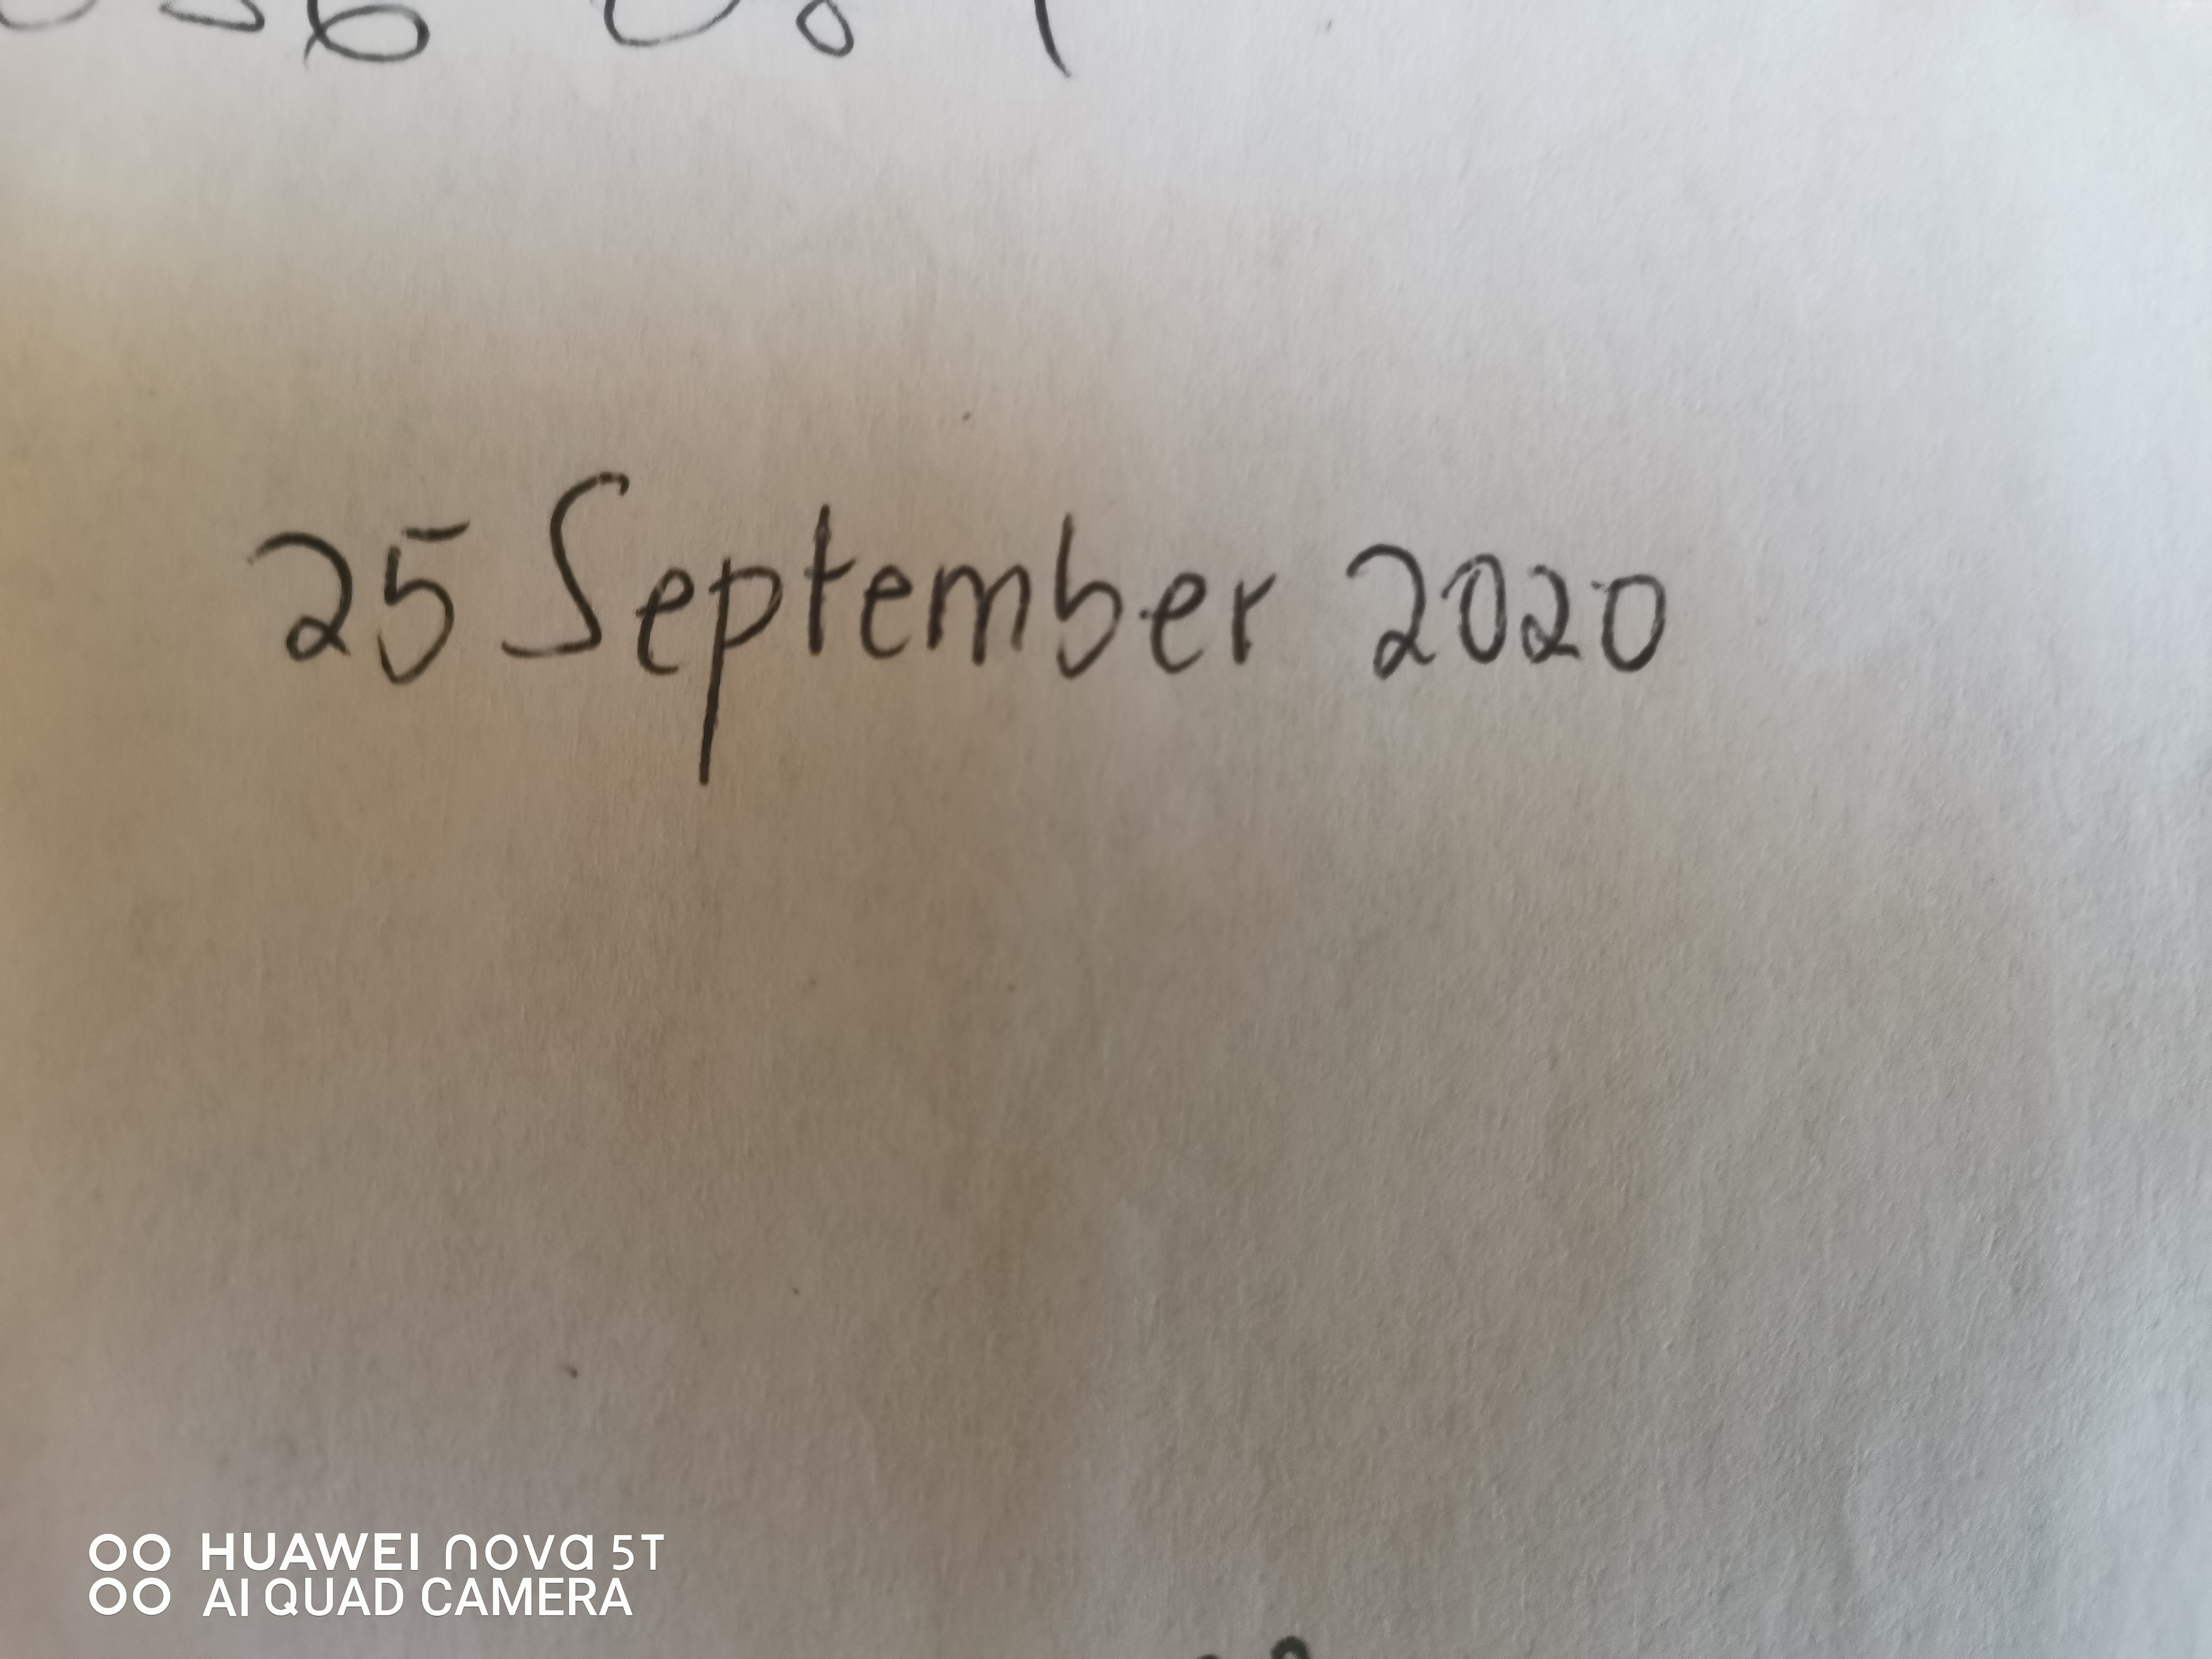 25 September 2020
HUAWEI nova 5T
AI QUAD CAMERA